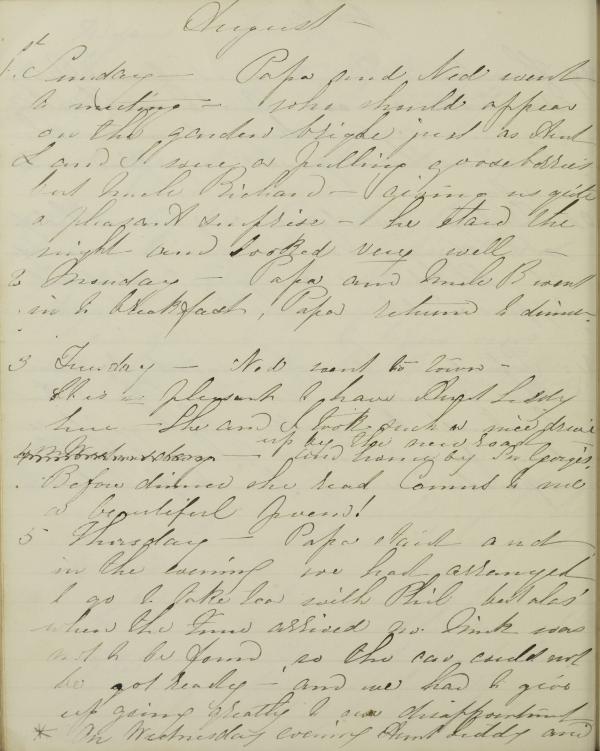 August —
1st Sunday — Papa and Ned went
to meeting — who should appear
on the garden bridge just as Aunt
L and I were a pulling gooseberries
but Uncle Richard — giving us quite
a pleasant surprise — he staid the
night and looked very well —
2 Monday — Papa and Uncle R went
in to breakfast, Papa returned to dinner.
3 Tuesday — Ned went to town —
this is pleasant to have Aunt Liddy
here — She and I took such a nice drive
up by the new road
— and home by Georges.
Before dinner she read Comus to me
a beautiful poem!
5 Thursday — Papa staid and
in the evening we had arranged
to go to take tea with Phil but alas'
when the time arrived was
not to be found, so the car could not
be got ready — and we had to give
up going greatly to our disappointment
* On Wednesday evening Aunt Liddy and